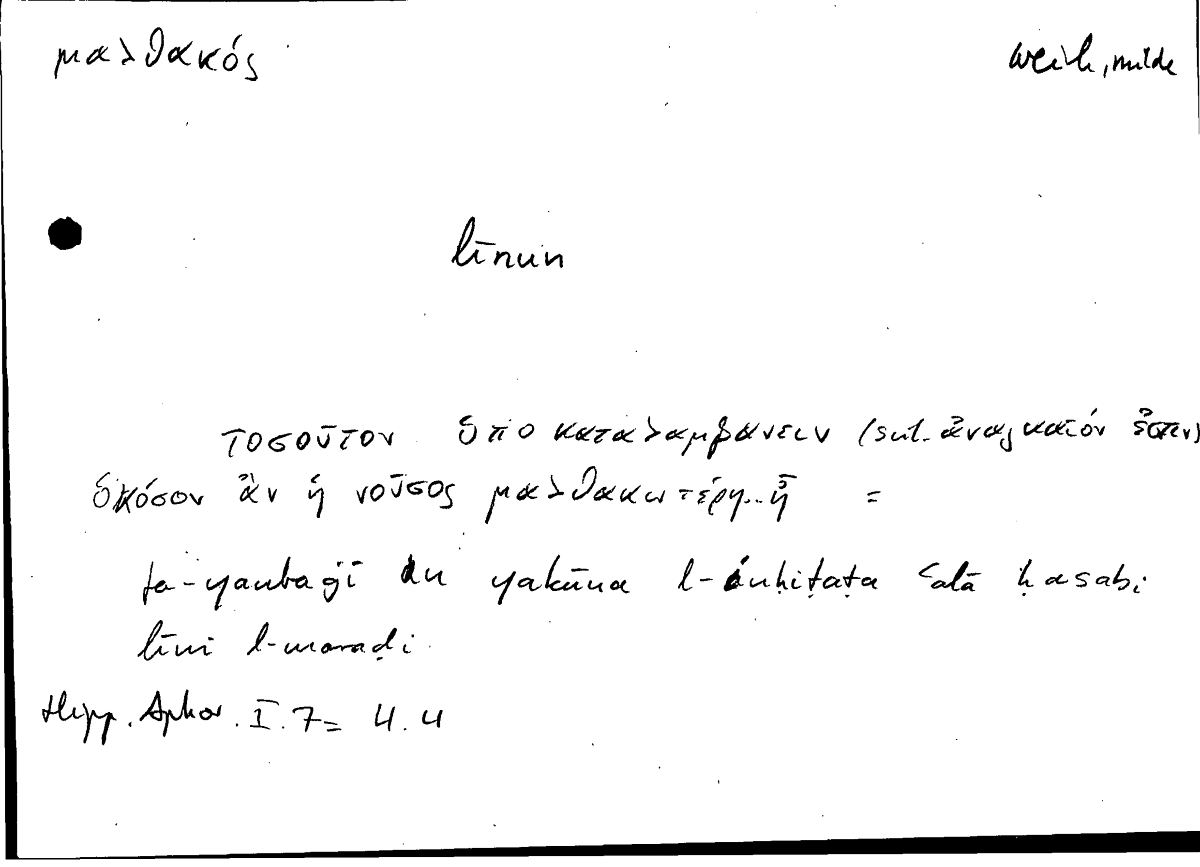 μαλθακός weich, milde
līnun
τοσοῦτον ὑποκαταλαμβάνειν (scil. ἀναγκαῖόν ἐστιν)
ὁκόσον ἂν ἡ νοῦσος μαλθακωτέρη.. ᾖ =
fa-yanbaġī an yakūna l-inḥiṭāṭa ʿalā ḥasabi
līni l-maraḍi.
Hipp. Aphor. I.7 = 4.4